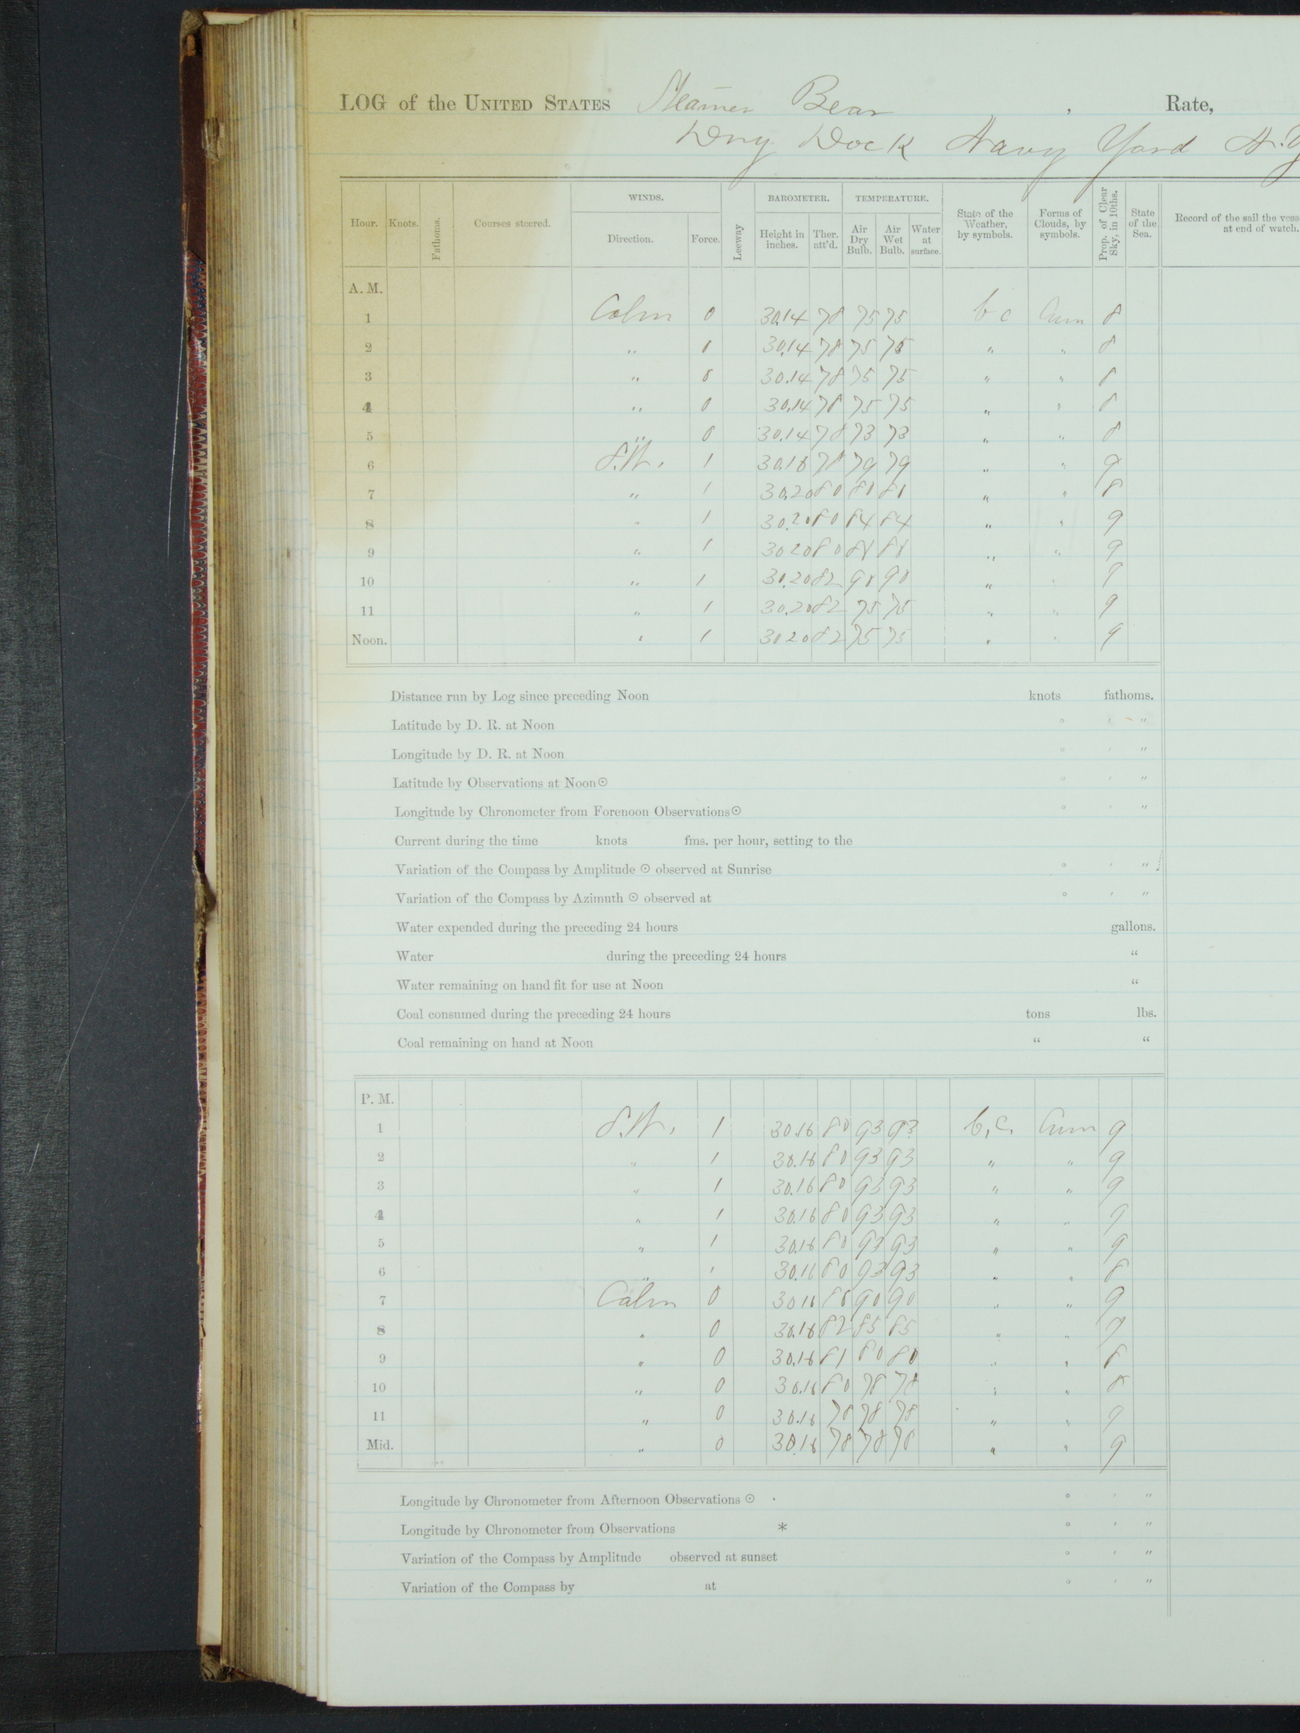 LOG of the UNITED STATES Steamer Bear , Rate,
Dry Dock Navy Yard N.Y
Hour. Knots. Fathoms. Courses steered. WINDS. Direction. Force. Leeway BAROMETER. Height in inches. Ther. att'd. TEMPERATURE. Air Dry Bulb. Air Wet Bulb. Water at surface. State of the Weather, by symbols. Forms of Clouds, by symbols. Prop. of Clear Sky, in 10ths. State of the Sea. Record of the sail the vess at end of watch.
A. M.
1 Calm 0 30.14 78 75 75 b c Cum 8
2 " 0 30.14 78 75 75 " " 8
3 " 0 30.14 78 75 75 " " 8
4 " 0 30.14 78 75 75 " " 8
5 " 0 30.14 78 73 73 " " 8
6 S.W. 1 30.18 78 79 79 " " 9
7 " 1 30.20 80 81 81 " " 8
8 " 1 30.20 80 84 84 " " 9
9 " 1 30.20 80 88 88 " " 9
10 " 1 30.20 82 90 90 " " 9
11 " 1 30.20 82 75 75 " " 9
Noon. " 1 30.20 82 75 75 " " 9
Distance run by Log since preceding Noon knots fathoms.
Latitude by D. R. at Noon ° ' "
Longitude by D. R. at Noon ° ' "
Latitude by Observations at Noon☉ ° ' "
Longitude by Chronometer from Forenoon Observations☉ ° ' "
Current during the time knots fms. per hour, setting to the
Variation of the Compass by Amplitude ☉ observed at Sunrise ° ' "
Variation of the Compass by Azimuth ☉ observed at ° ' "
Water expended during the preceding 24 hours gallons.
Water during the preceding 24 hours "
Water remaining on hand fit for use at Noon "
Coal consumed during the preceding 24 hours tons lbs.
Coal remaining on hand at Noon " "
P. M.
1 S.W. 1 30.16 80 93 93 b.c. Cum 9
2 " 1 30.16 80 93 93 " " 9
3 " 1 30.16 80 93 93 " " 9
4 " 1 30.16 80 93 93 " " 9
5 " 1 30.16 80 93 93 " " 9
6 " 1 30.16 80 93 93 " " 8
7 Calm 0 30.16 80 90 90 " " 9
8 " 0 30.16 82 85 85 " " 9
9 " 0 30.16 81 80 80 " " 8
10 " 0 30.16 80 78 78 " " 8
11 " 0 30.16 78 78 78 " " 9
Mid. " 0 30.16 78 78 78 " " 9
Longitude by Chronometer from Afternoon Observations ☉ ° ' "
Longitude by Chronometer from Observations * ° ' "
Variation of the Compass by Amplitude observed at sunset ° ' "
Variation of the Compass by at ° ' "